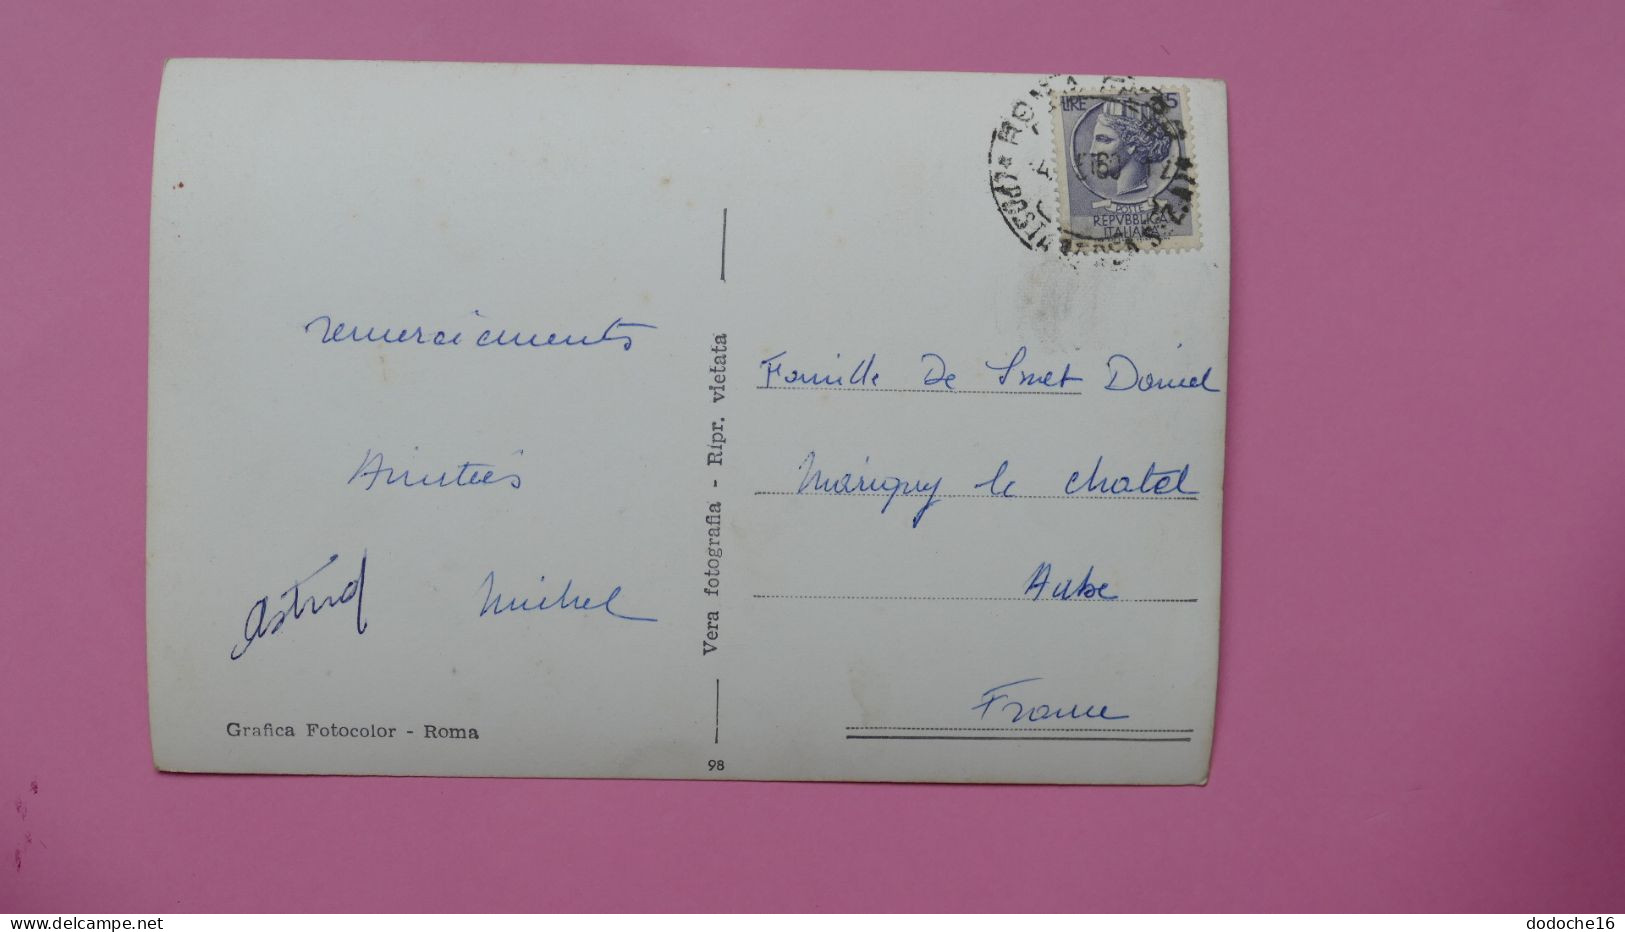 remerciements
Amitiés
Astrid Michel
Grafica Fotocolor - Roma
Vera fotografia - Ripr. vietata
98
LIRE 15
POSTE
REPVBBLICA
ITALIANA
ROMA
60
Famille De Smet Daniel
Marigny le Chatel
Aube
France
delcampe.net
dodoche16